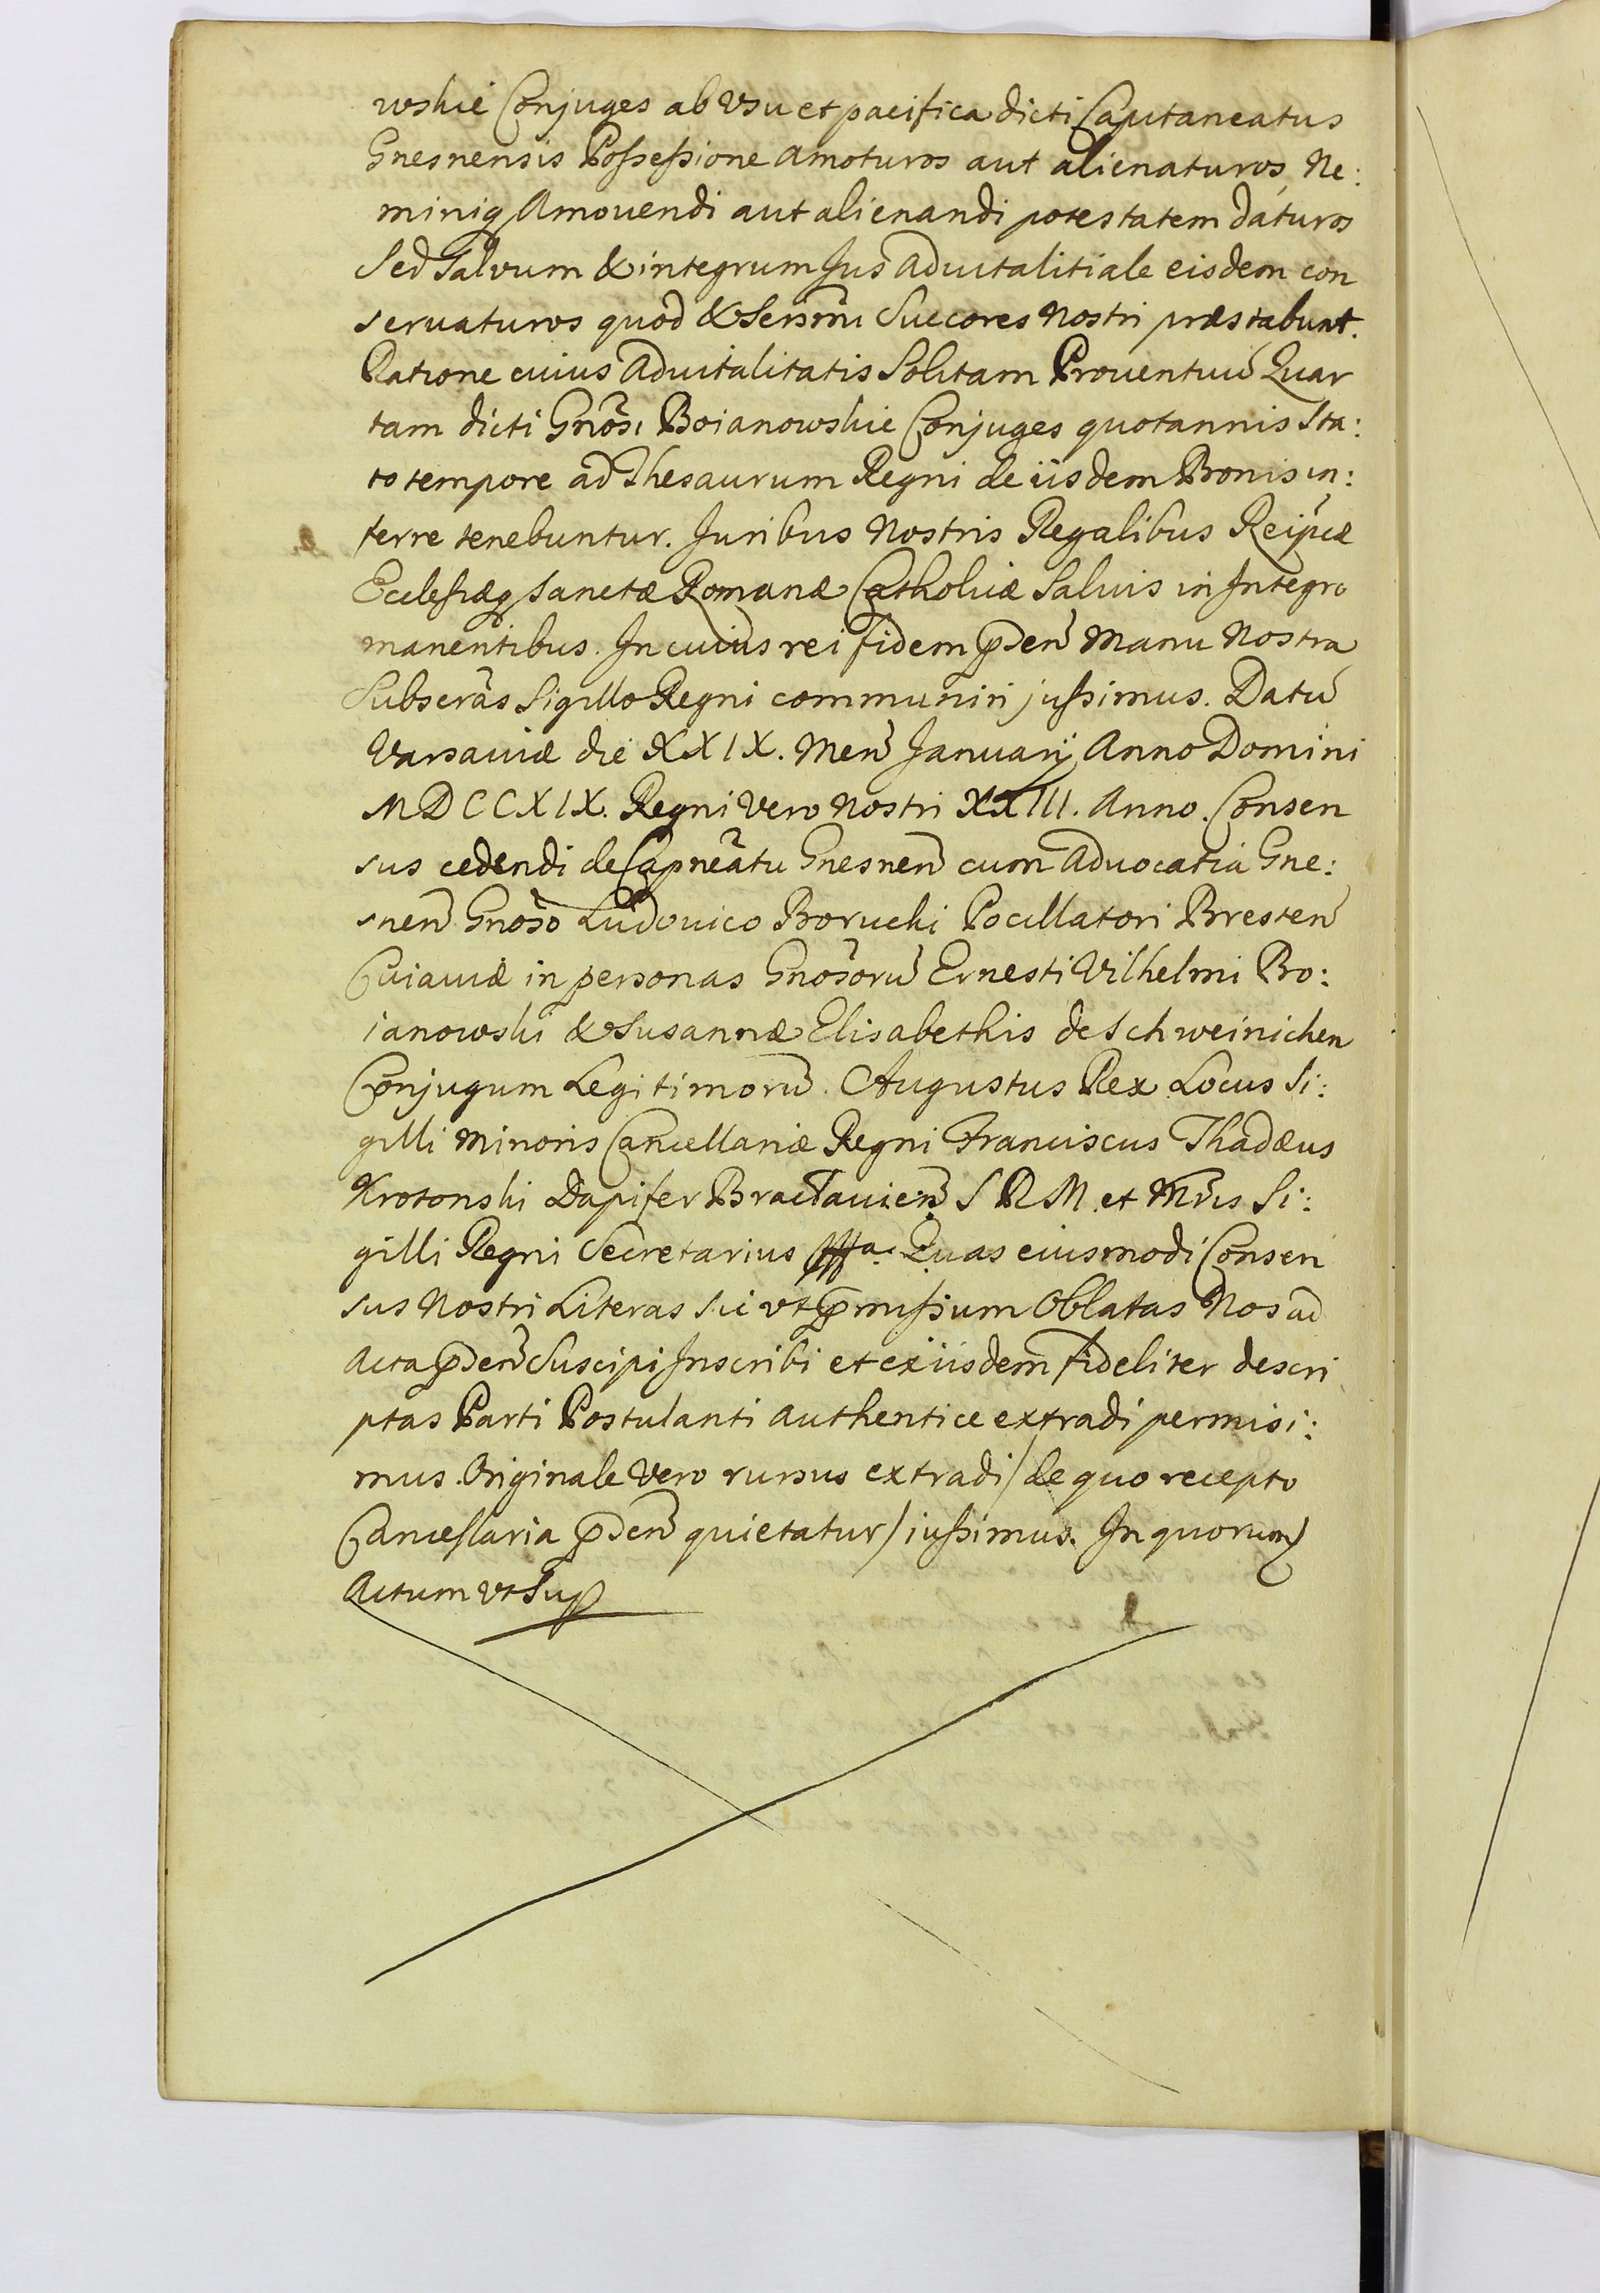 wskie Conjuges ab Vsu et pacifica dicti Capitaneatus
Gnesnensis Possessione Amoturos aut alienaturos, Ne:
miniq Amouendi aut alienandi potestatem daturos
Sed Saluum & integrum Jus Aduitalitiale eisdem con
seruaturos quod & Serenmi Succores Nostri præstabunt.
Ratione cuius Aduitalitatis Solitam Prouentuũ Quar
tam dicti Gnõsi Boianowskie Conjuges quotannis Sta:
to tempore ad Thesaurum Regni de iisdem Bonis in:
ferre tenebuntur. Juribus Nostris Regalibus Reipcæ
Ecclesiæq Sanctæ Romanæ Catholicæ Saluis in Integro
manentibus. In cuius rei fidem pñden Manu Nostra
Subscrãs Sigillo Regni communiri jussimus. Datũ
Varsauiæ die XXIX. Men Januarij Anno Domini
MDCCXIX. Regni Vero Nostri XXIII. Anno. Consen
sus cedendi de Capneãtu Gnesnen cum Aduocatia Gne:
snen Gnõso Ludouico Borucki Pocillatori Bresten
Cuiauiæ in personas Gnõsorũ Ernesti Vilhelmi Bo:
ianowski & Susannæ Elisabethis de Schweinichen
Conjugum Legitimorũ. Augustus Rex Locus Si:
gilli Minoris Cancellariæ Regni Franciscus Thadæus
Krotonski Dapifer Bractauien S R M. et Mris Si:
gilli Regni Secretarius Quas eiusmodi Consen
sus Nostri Literas Sic vt pmissium Oblatas Nos ad
Acta pden Suscipi Inscribi et ex iisdem fideliter descri
ptas Parti Postulanti Authentice extradi permisi:
mus. Originale Vero rursus extradi / de quo recepto
Cancellaria pden quietatur / iussimus. In quorum
Actum vt Sup